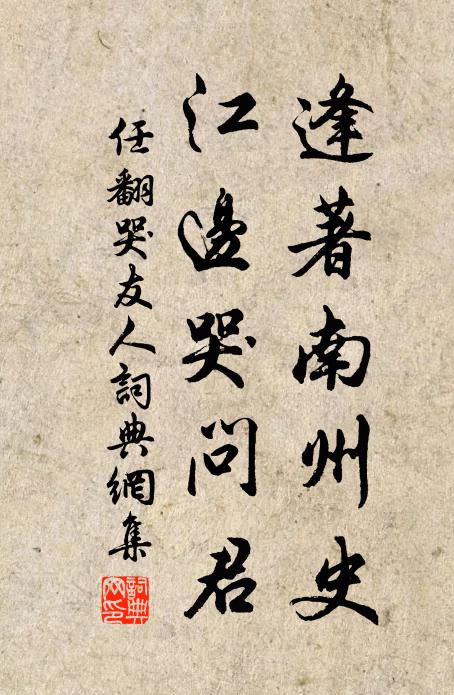 逢著南州史
江邊哭問君
任翻哭友人詞典網集
詞典網印